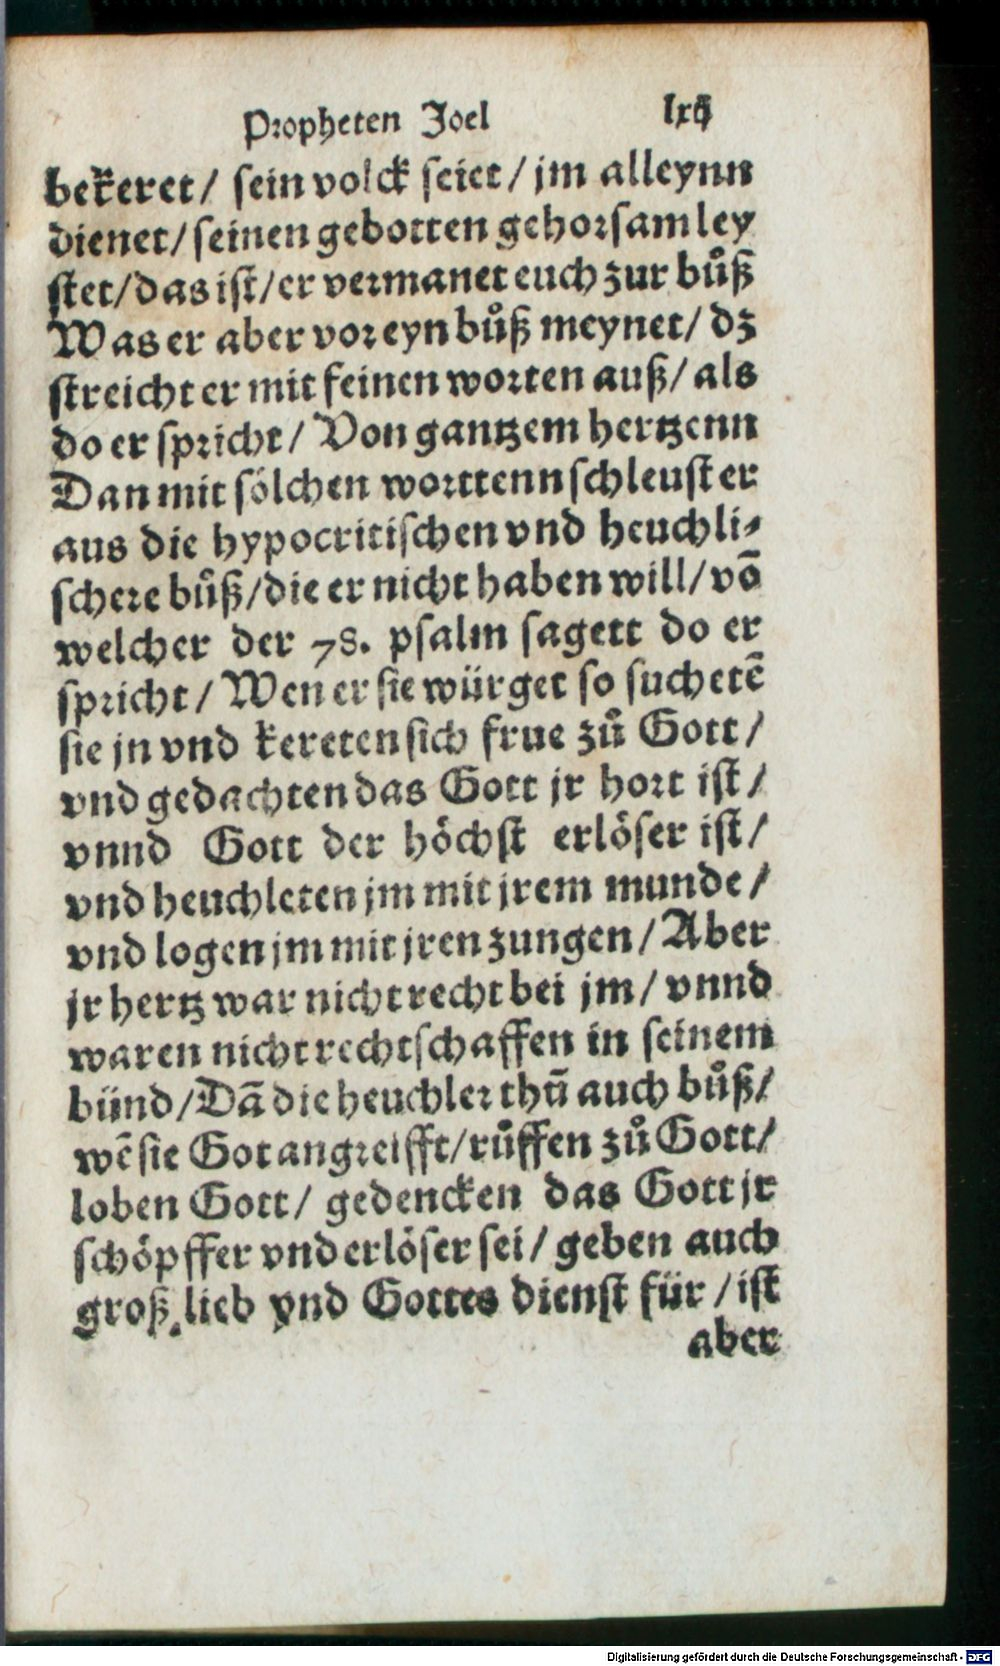 Propheten Joel
bekeret / sein volck seiet / jm alleynn
dienet / seinen gebotten gehorsam ley
stet / das ist / er vermanet euch zur bůß
Was er aber vor eyn bůß meynet / dz
streicht er mit feinen worten auß / als
do er spricht / Von gantzem hertzenn
Dan mit sölchen worttenn schleust er
aus die hypocritischen vnd heuchli⸗
schere bůß / die er nicht haben will / võ
welcher der 78. psalm sagett do er
spricht / Wen er sie würget so suchetẽ
sie jn vnd kereten sich frue zů Gott /
vnd gedachten das Gott jr hort ist /
vnnd Gott der höchst erlöser ist /
vnd heuchleten jm mit jrem munde /
vnd logen jm mit jren zungen / Aber
jr hertz war nicht recht bei jm / vnnd
waren nicht rechtschaffen in seinem
bünd / Dã die heuchler thũ auch bůß /
wẽ sie Got angreifft / růffen zů Gott /
loben Gott / gedencken das Gott jr
schöpffer vnd erlöser sei / geben auch
groß lieb vnd Gottes dienst für / ist
aber
Digitalisierung gefördert durch die Deutsche Forschungsgemeinschaft - DFG